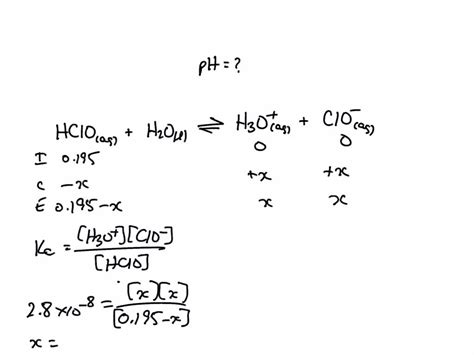 pH = ?
HClO(aq) + H2O(l) ⇌ H3O+(aq) + ClO-(aq)
I 0.195 0 0
C -x +x +x
E 0.195-x x x
Kc = [H3O+][ClO-] / [HClO]
2.8×10^-8 = [x][x] / [0.195-x]
x =